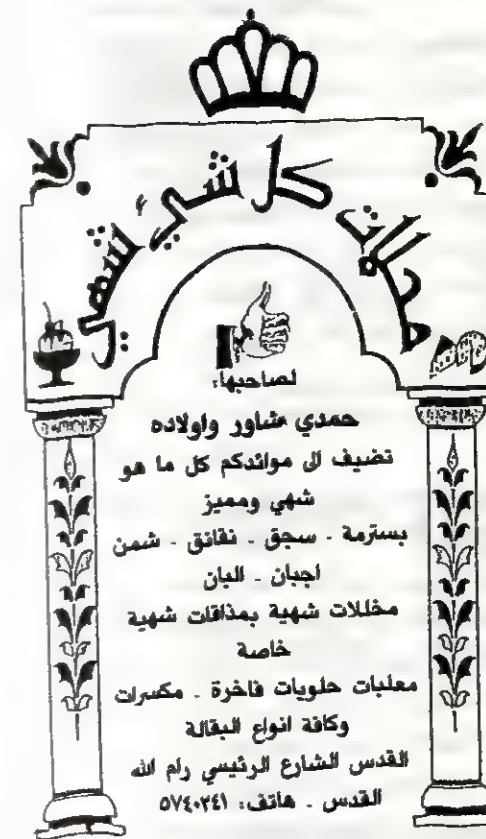 محلات كل شيء شهي
لصاحبها:
حمدي مشاور واولاده
تضيف الى موائدكم كل ما هو
شهي ومميز
بسترمة - سجق - نقانق - شمن
اجبان - البان
مخللات شهية بمذاقات شهية
خاصة
معلبات حلويات فاخرة - مكسرات
وكافة انواع البقالة
القدس الشارع الرئيسي رام الله
القدس - هاتف: ٥٧٤٠٢٤١